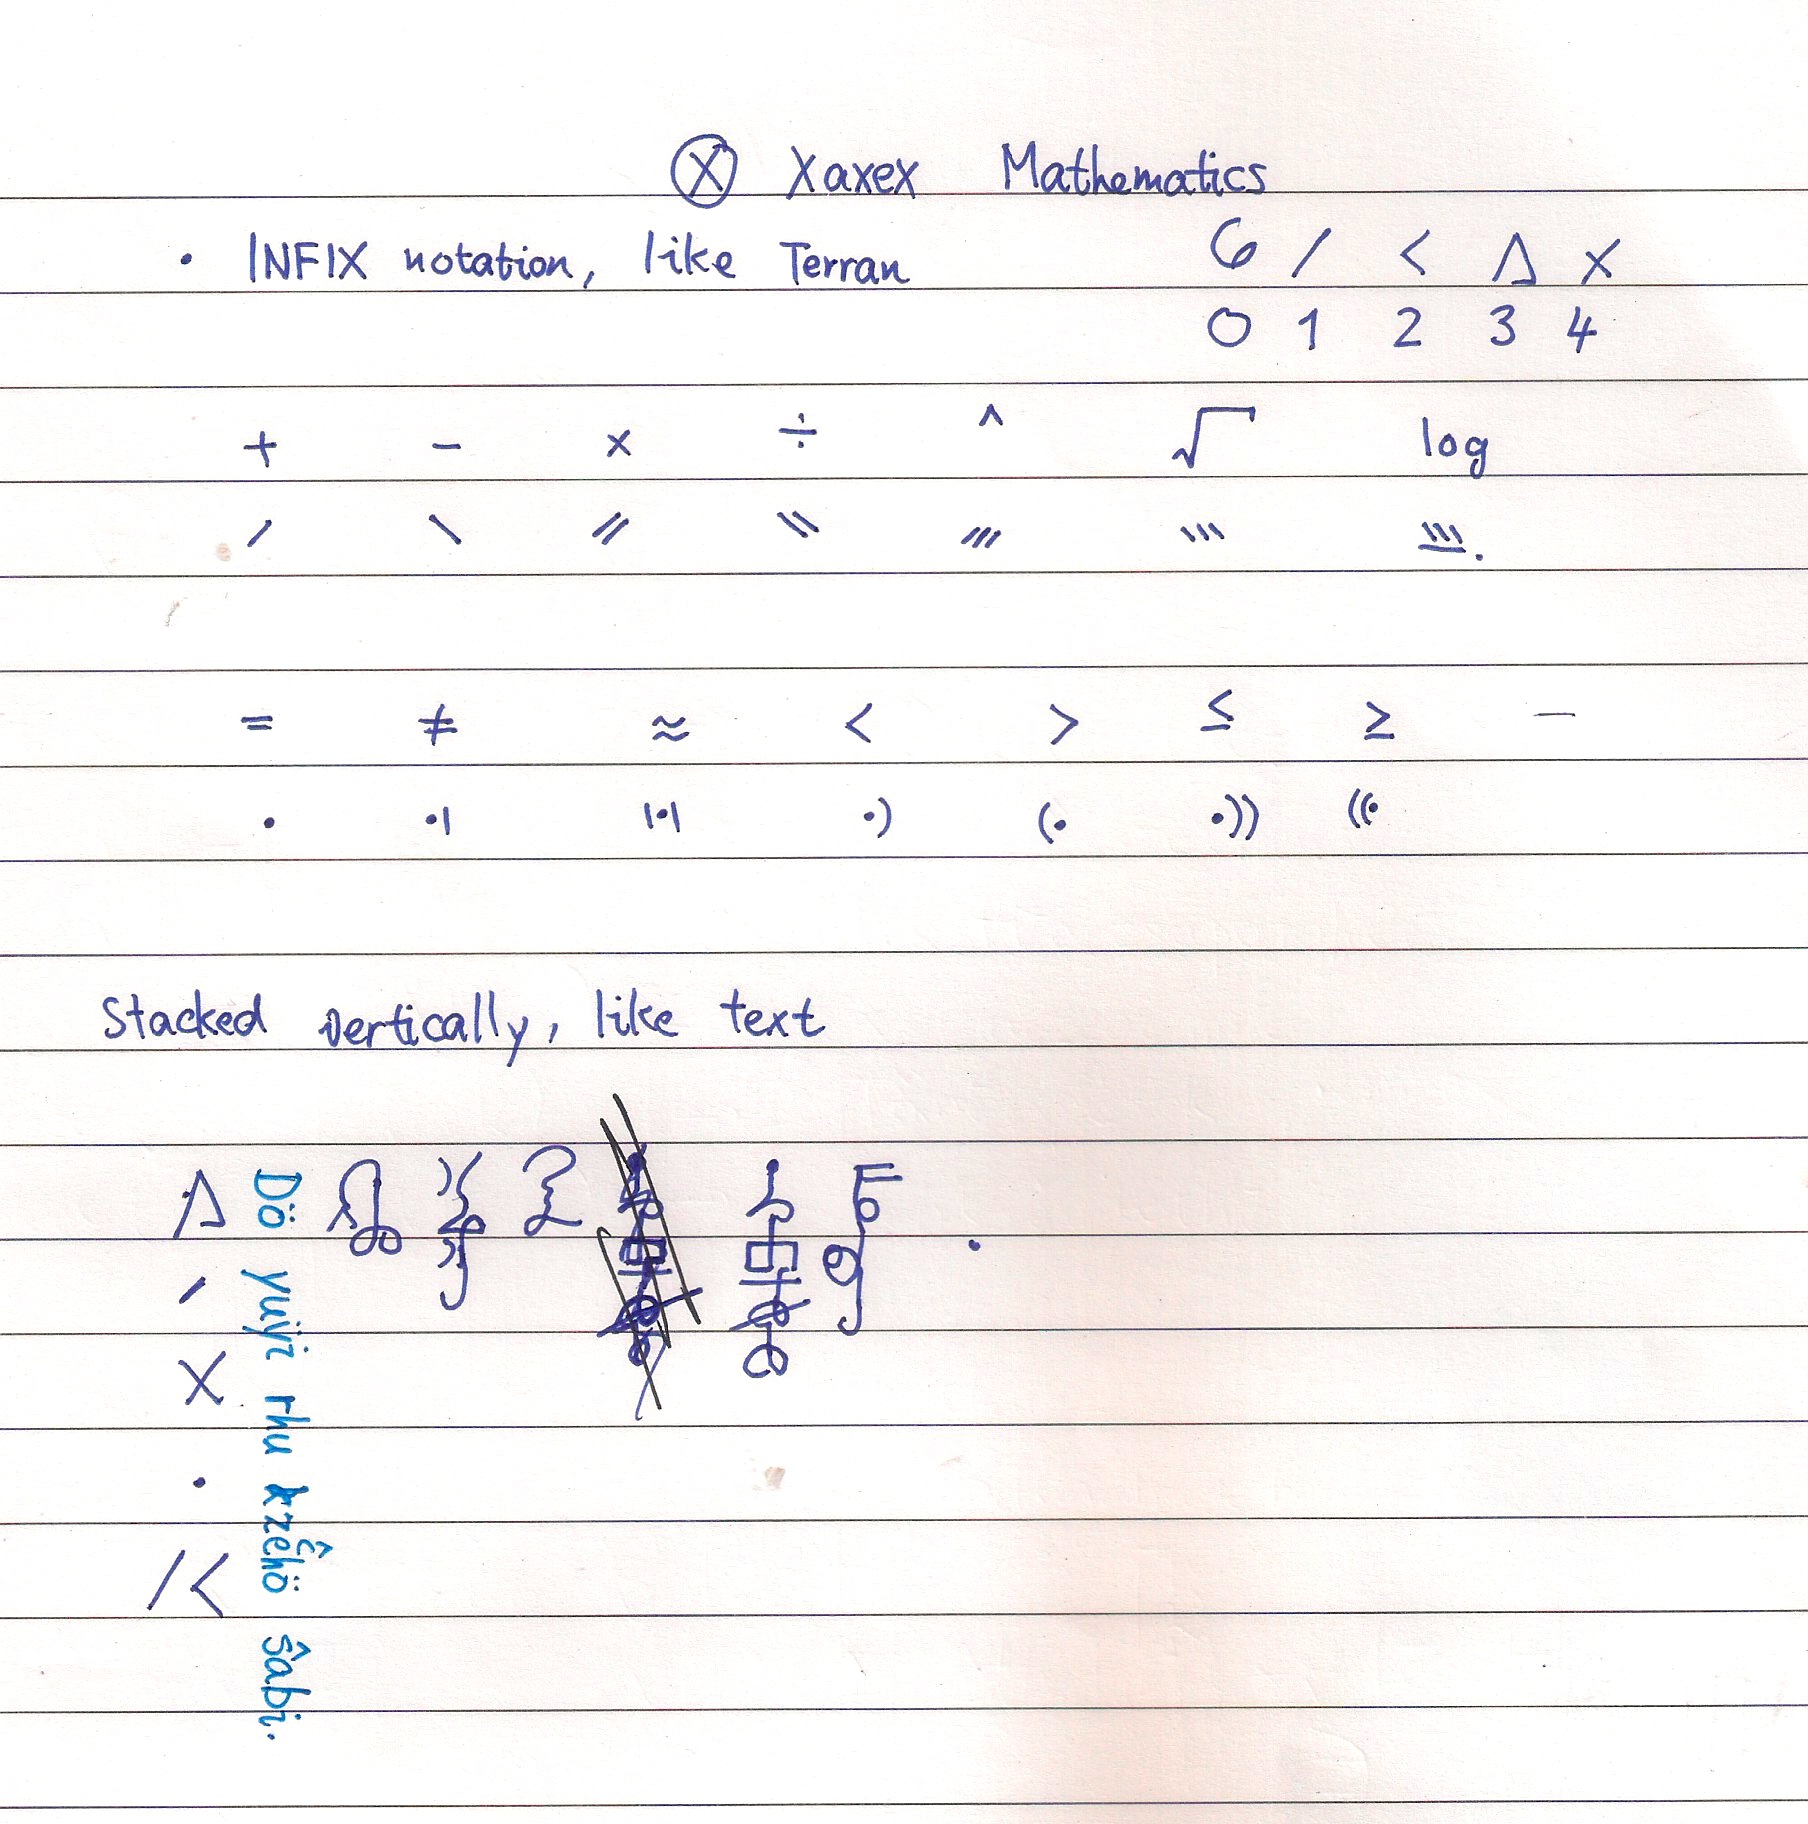 Ⓧ Xaxex Mathematics
• INFIX notation, like Terran
6 / < Δ X
0 1 2 3 4
+ − × ÷ ^ √ log
/ \ // \\ /// \\\ \\\.
= ≠ ≈ < > ≤ ≥ —
• •| |•| •) (• •)) ((•
Stacked vertically, like text
Δ
/
X
•
/<
Dö yuÿi rhu kzêhö ŝabi.